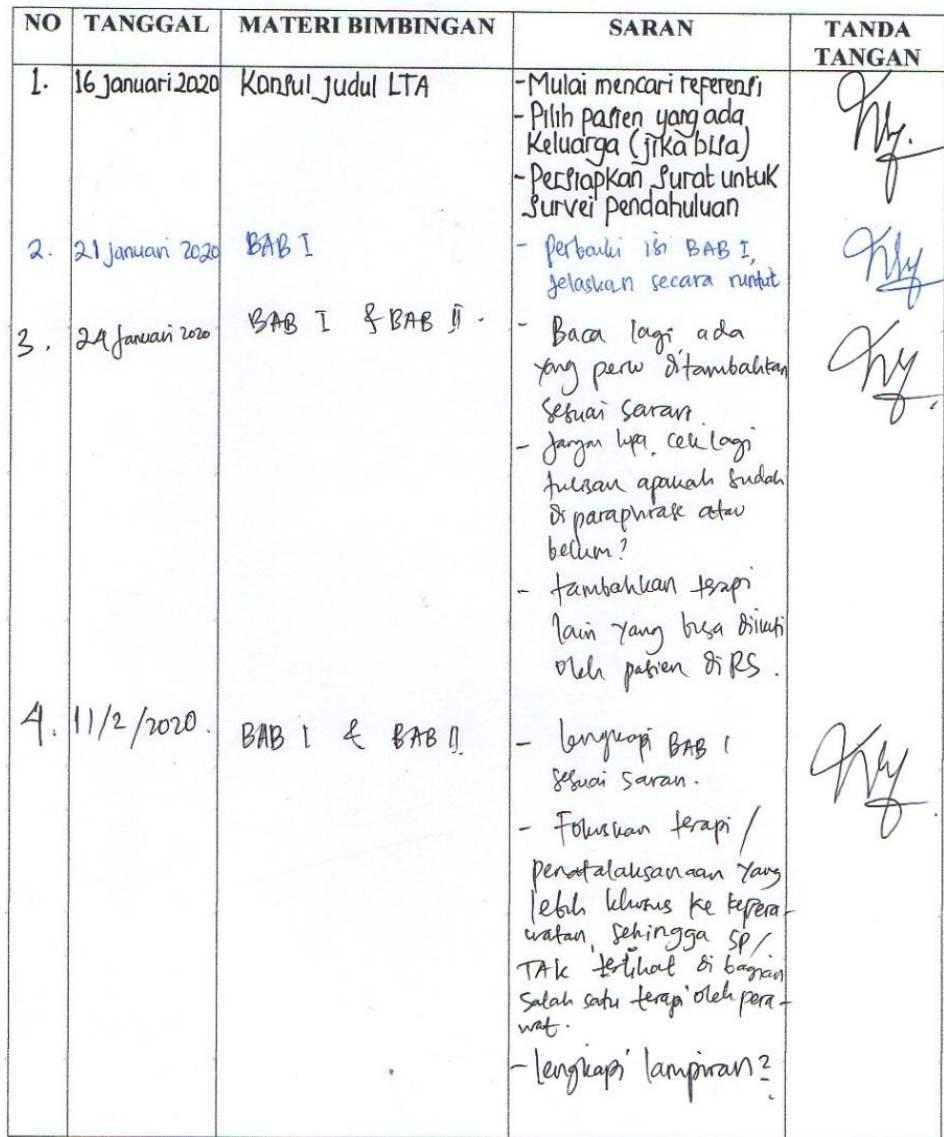 NO TANGGAL MATERI BIMBINGAN SARAN TANDA TANGAN
1. 16 Januari 2020 Konsul Judul LTA - Mulai mencari referensi
- Pilih pasien yang ada
Keluarga (jika bisa)
- Persiapkan Surat untuk
Survei Pendahuluan
2. 21 Januari 2020 BAB I - perbaiki isi BAB I,
jelaskan secara runtut
3. 24 Januari 2020 BAB I & BAB II. - Baca lagi, ada
yang perlu ditambahkan
sesuai saran.
- Jangan lupa, cek lagi
tulisan apakah sudah
di paraphrase atau
belum?
- tambahkan terapi
lain yang bisa diikuti
oleh pasien di RS.
4. 11/2/2020. BAB I & BAB II. - lengkapi BAB I
sesuai saran.
- Fokuskan terapi /
penatalaksanaan yang
lebih khusus ke kepera-
watan, sehingga SP/
TAK terlihat di bagian
salah satu terapi oleh pera-
wat.
- lengkapi lampiran2.